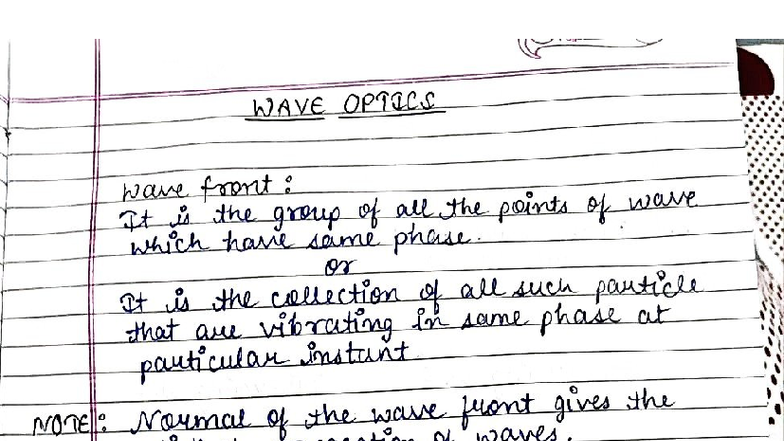 WAVE OPTICS
Wave front :
It is the group of all the points of wave
which have same phase.
or
It is the collection of all such particle
that are vibrating in same phase at
particular instant
NOTE : Normal of the wave front gives the
of waves.